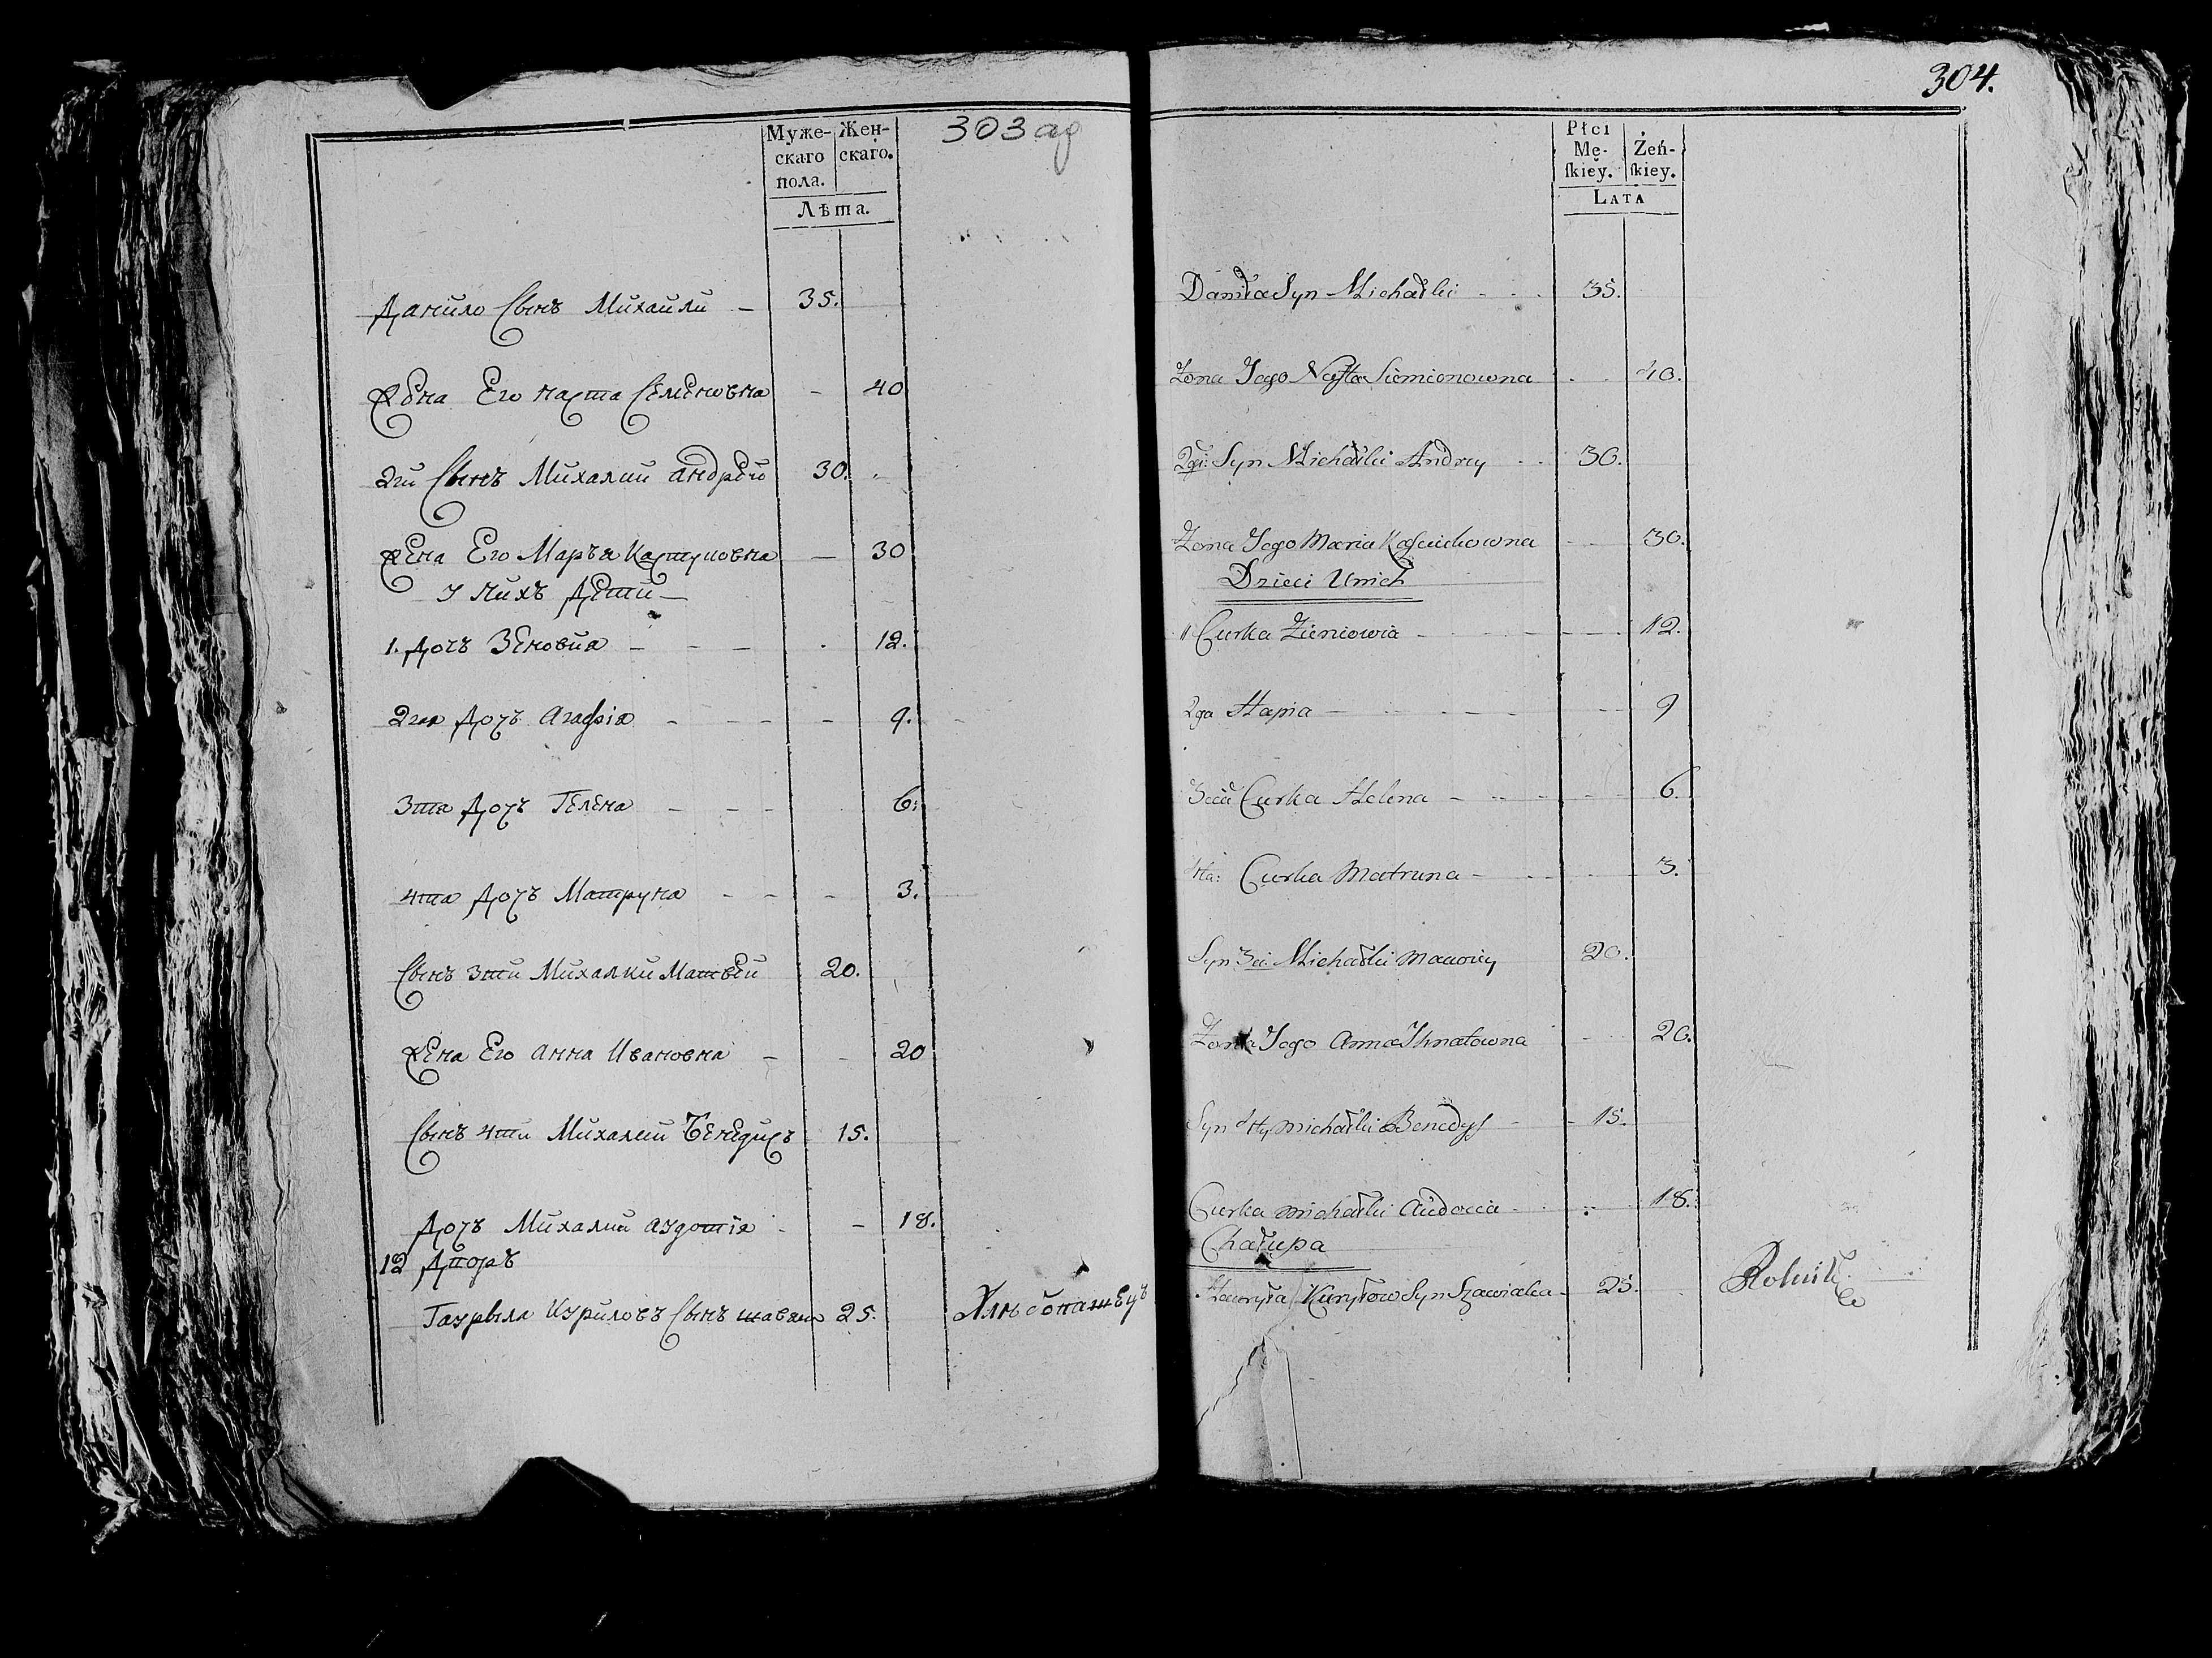 303 aд
Муже-
скаго
пола.
Жен-
скаго.
Лѣта.
Данило Сынъ Михайли – 35.
Жена Его Наста Семеновна – 40
2й Сынъ Михалки Андрей 30.
Жена Его Марья – 30
У нихъ Дети –
1. Дочь Зеновиа – – – 12.
2гая Дочь Агафія – – – 9.
3тя Дочь Гелена – – – 6.
4та Дочь Матруна – – – 3.
Сынъ 3тй Михалки Матвей 20.
Жена Его Анна Ивановна – – 20
Сынъ 4тй Михалки Бенедисъ 15.
Дочь Михалки Аудотія – 18.
12 Дворъ
Гаурыла Куриловъ Сынъ 25. Хлѣбопашецъ
304.
Płci
Mę-
ſkiey.
Żeń-
ſkiey.
LATA
Daniła Syn Michałki - - . 35.
Żona Jego Nasta Siemionowna . . 40.
2gi: Syn Michałki Andrey . . 30.
Żona Jego Maria 30.
Dzieci Unich
1 Curka Zieniowia 12.
2ga Hapia 9
3cia Curka Helena 6.
4ta: Curka Matruna 3.
Syn 3ci Michałki Maciey 20.
Żona Jego Anna Ihnatowna 20.
Syn 4ty Michałki Benedys 15.
Curka Michałki Audocia 18.
Chałupa
Hauryła Kuryłow Syn Szawiaka 25. Rolnik